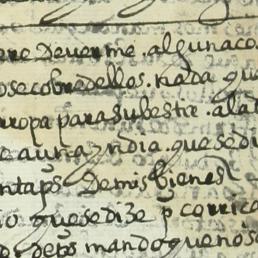 ere deverme . alguna co
osecobre dellos . nada que
ropa para su bestir . ala
e a una yndia . que se di
nta ps de mis bienes
o que se dize p
ps mando que no se